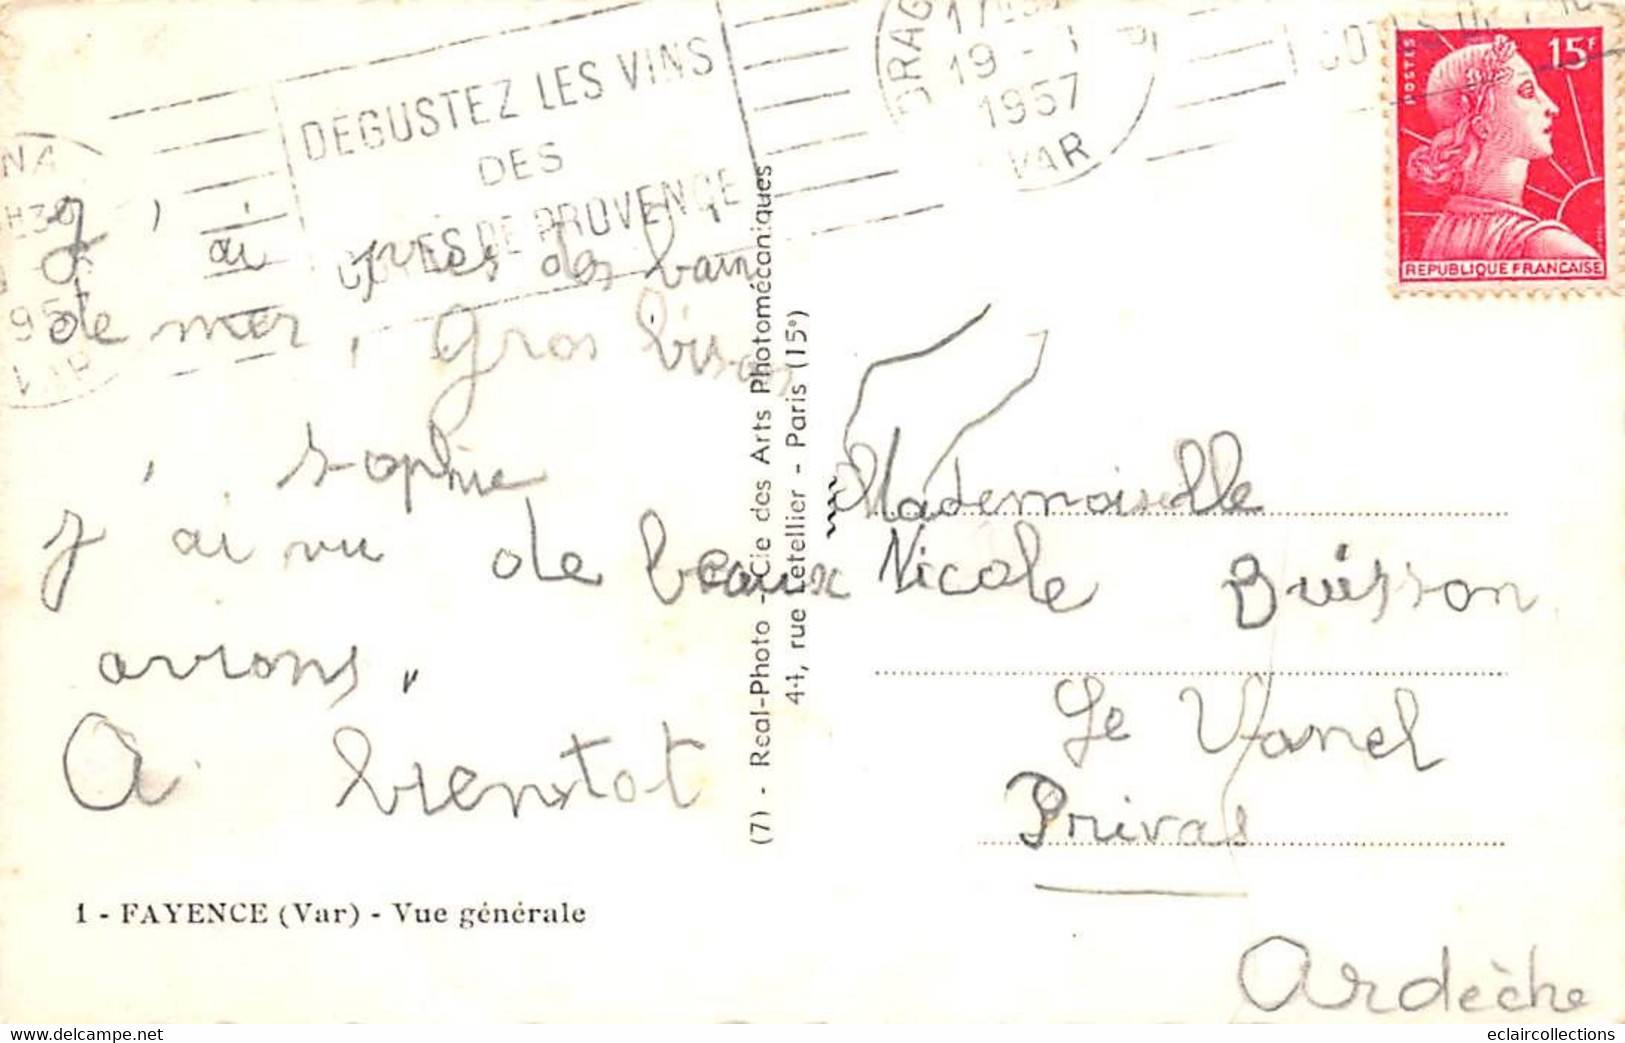 DÉGUSTEZ LES VINS
DES
CÔTES DE PROVENCE
DRAG
19 - 1
1957
VAR
POSTES
15F
REPUBLIQUE FRANCAISE
J'ai pris des bains
de mer, Gros bisous
sophie
J'ai vu de beaux
avions,,
A bientot
1 - FAYENCE (Var) - Vue générale
(7) - Real-Photo - Cie des Arts Photomécaniques
44, rue Letellier - Paris (15e)
Mademoiselle
Nicole Buisson
Le Vanel
Privas
Ardèche
eclaircollections